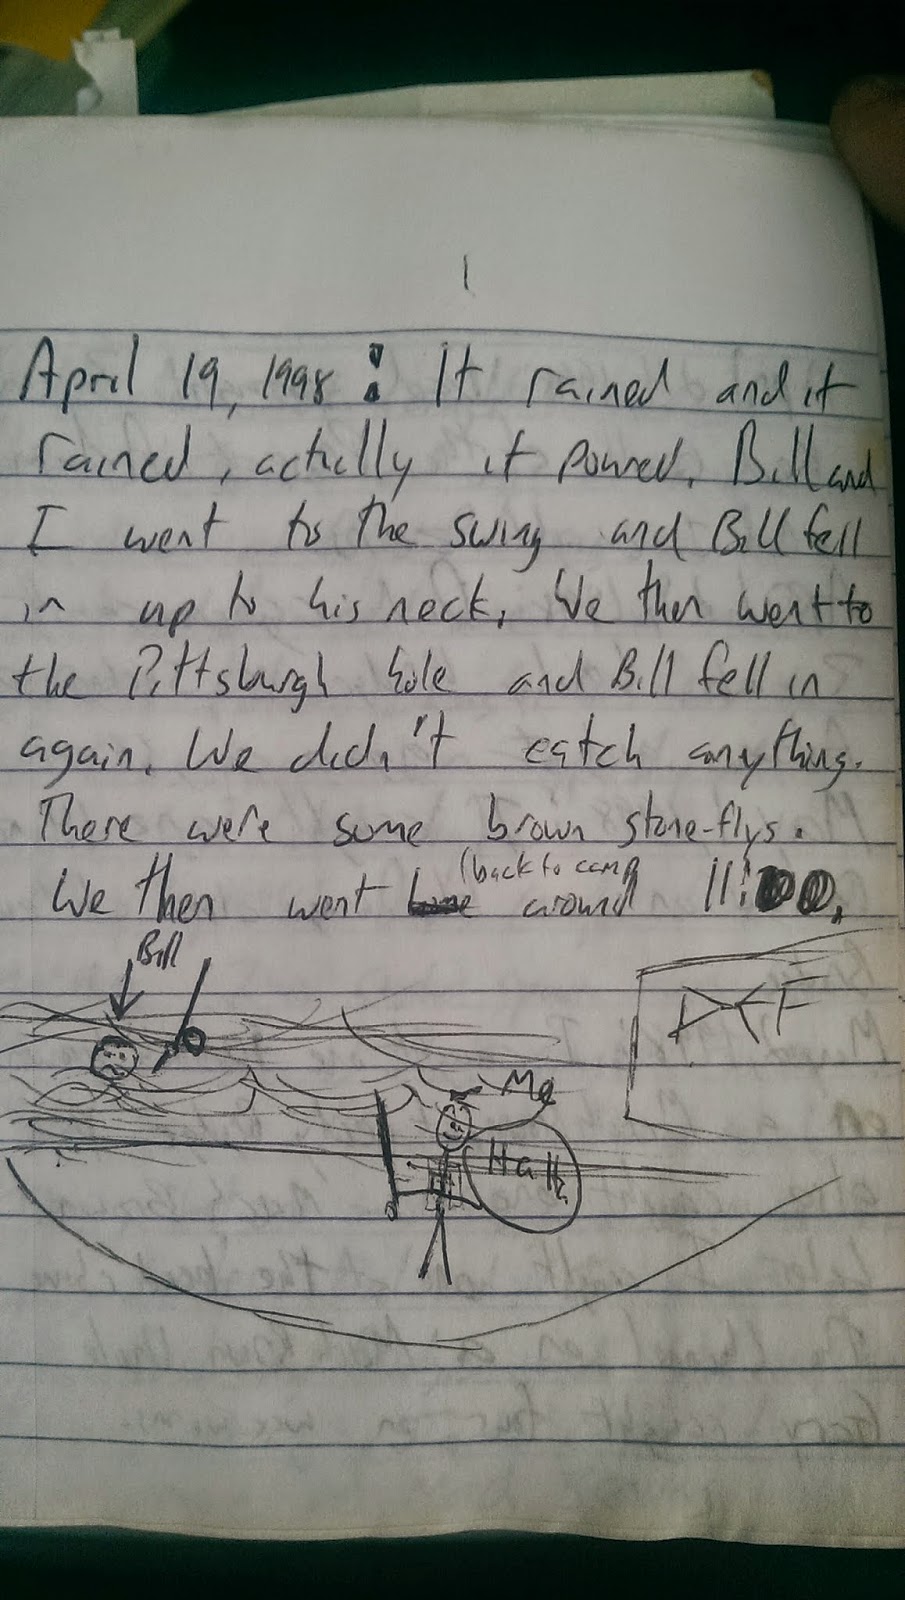 1
April 19, 1998: It rained and it
rained, actully it poured. Bill and
I went to the swing and Bill fell
in up to his neck, We then went to
the Pittsburgh hole and Bill fell in
again. We didn't catch anything.
There were some brown stone-flys.
(back to camp
We then went around 11:00.
Bill
Me